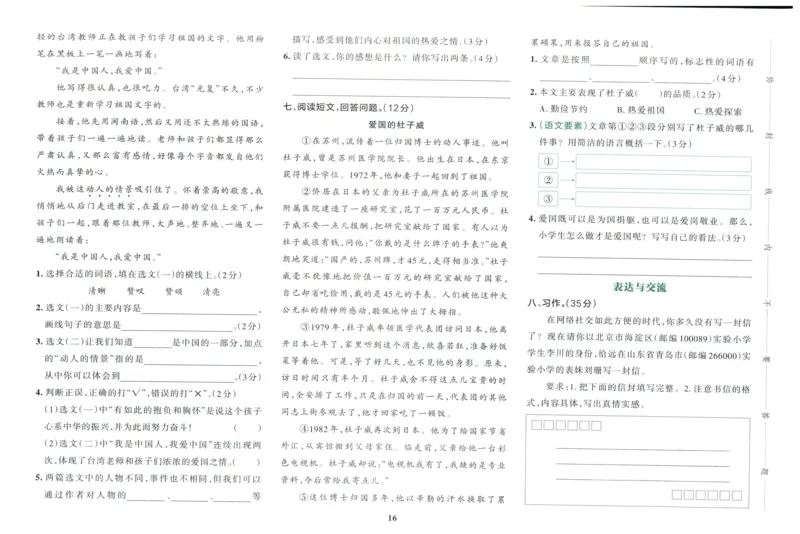 轻的台湾教师正在教孩子们学习祖国的文字。他用粉
笔在黑板上一笔一画地写着：
“我是中国人，我爱中国。”
他写得很认真，也很吃力。台湾“光复”不久，不少
教师也是重新学习祖国文字的。
接着，他先用闽南语，然后又用还不太熟练的国语，
带着孩子们一遍一遍地读。老师和孩子们都显得那么
严肃认真，又那么富有感情，好像每个字音都发自他们
火热而真挚的心。
我被这动人的情景吸引住了。怀着崇高的敬意，我
悄悄地从后门走进教室，在最后一排的空位上坐下，和
孩子们一起，跟着那位教师，大声地、整齐地、一遍又一
遍地朗读着：
“我是中国人，我爱中国。”
1. 选择合适的词语，填在选文(一)的横线上。(2分)
清晰 赞叹 赞颂 清亮
2. 选文(一)的主要内容是，
画线句子的意思是。(2分)
3. 选文(二)让我们知道是中国的一部分，加点
的“动人的情景”指的是，
从中你可以体会到。(3分)
4. 判断正误，正确的打“√”，错误的打“✕”。(2分)
(1)选文(一)中“有如此的抱负和胸怀”是说这个孩子
心系中华的振兴，并为此而努力奋斗！( )
(2)选文(二)中“我是中国人，我爱中国”连续出现两
次，体现了台湾老师和孩子们浓浓的爱国之情。( )
5. 两篇选文中的人物不同，事件也不相同，但我们可以
通过作者对人物的、、等
描写，感受到他们内心对祖国的热爱之情。(3分)
6. 读了选文，你的感想是什么？请你写出两条。(4分)
七、阅读短文，回答问题。(12分)
爱国的杜子威
①在苏州，流传着一位归国博士的动人事迹。他叫
杜子威，曾是苏州医学院院长。他出生在日本，在东京
获得博士学位。1972年，他和妻子一起回到了祖国。
②侨居在日本的父亲为杜子威所在的苏州医学院
附属医院建造了一座研究室，花了一百万元人民币。杜
子威不要八万元报酬，把研究室献给了国家。有人以为
杜子威很有钱，问他：“你戴的是什么牌子的手表？”他爽
朗地笑道：“国产的，苏州牌，才45元，走得相当准。”杜子
威毫不犹豫地把价值一百万元的研究室献给了国家，
自己却省吃俭用，戴的是45元的手表。人们被他这种大
公无私的精神所感动，敬佩地伸出了大拇指。
③1979年，杜子威率领医学代表团访问日本，他离
开日本七年了，家里听到这个消息，欣喜若狂，准备好饭
菜等着他。可是，等了好几天，也不见他的身影。原来，
访日时间只有半个月。杜子威舍不得这点儿宝贵的时
间，全安排了工作，只是在归国的前一天，代表团的其他
同志上街参观去了，他才回家吃了一顿饭。
④1982年，杜子威再次到日本。他为了给国家节省
外汇，从宾馆搬到父母家住。临走前，父亲给他一台彩
色电视机。杜子威却说：“电视我有了，我缺的是专业
资料，今后常给我寄点儿。”
⑤这位博士归国多年，他以辛勤的汗水换取了累
累硕果，用来报答自己的祖国。
1. 文章是按照顺序写的，标志性的词语有
、、。(4分)
2. 本文主要表现了杜子威( )的品质。(2分)
A. 勤俭节约 B. 热爱祖国 C. 热爱探索
3. (语文要素)文章第①②③段分别写了杜子威的哪几
件事？用简洁的语言概括一下。(3分)
①→
②→
③→
4. 爱国既可以是为国捐躯，也可以是爱岗敬业。那么，
小学生怎么做才是爱国呢？写写自己的看法。(3分)
表达与交流
八、习作。(35分)
在网络社交如此方便的时代，你多久没有写一封信
了？现在请你以北京市海淀区(邮编100089)实验小学
学生李川的身份，给远在山东省青岛市(邮编266000)实
验小学的表妹刘珊写一封信。
要求：1. 把下面的信封填写完整。2. 注意书信的格
式，内容具体，写出真情实感。
16